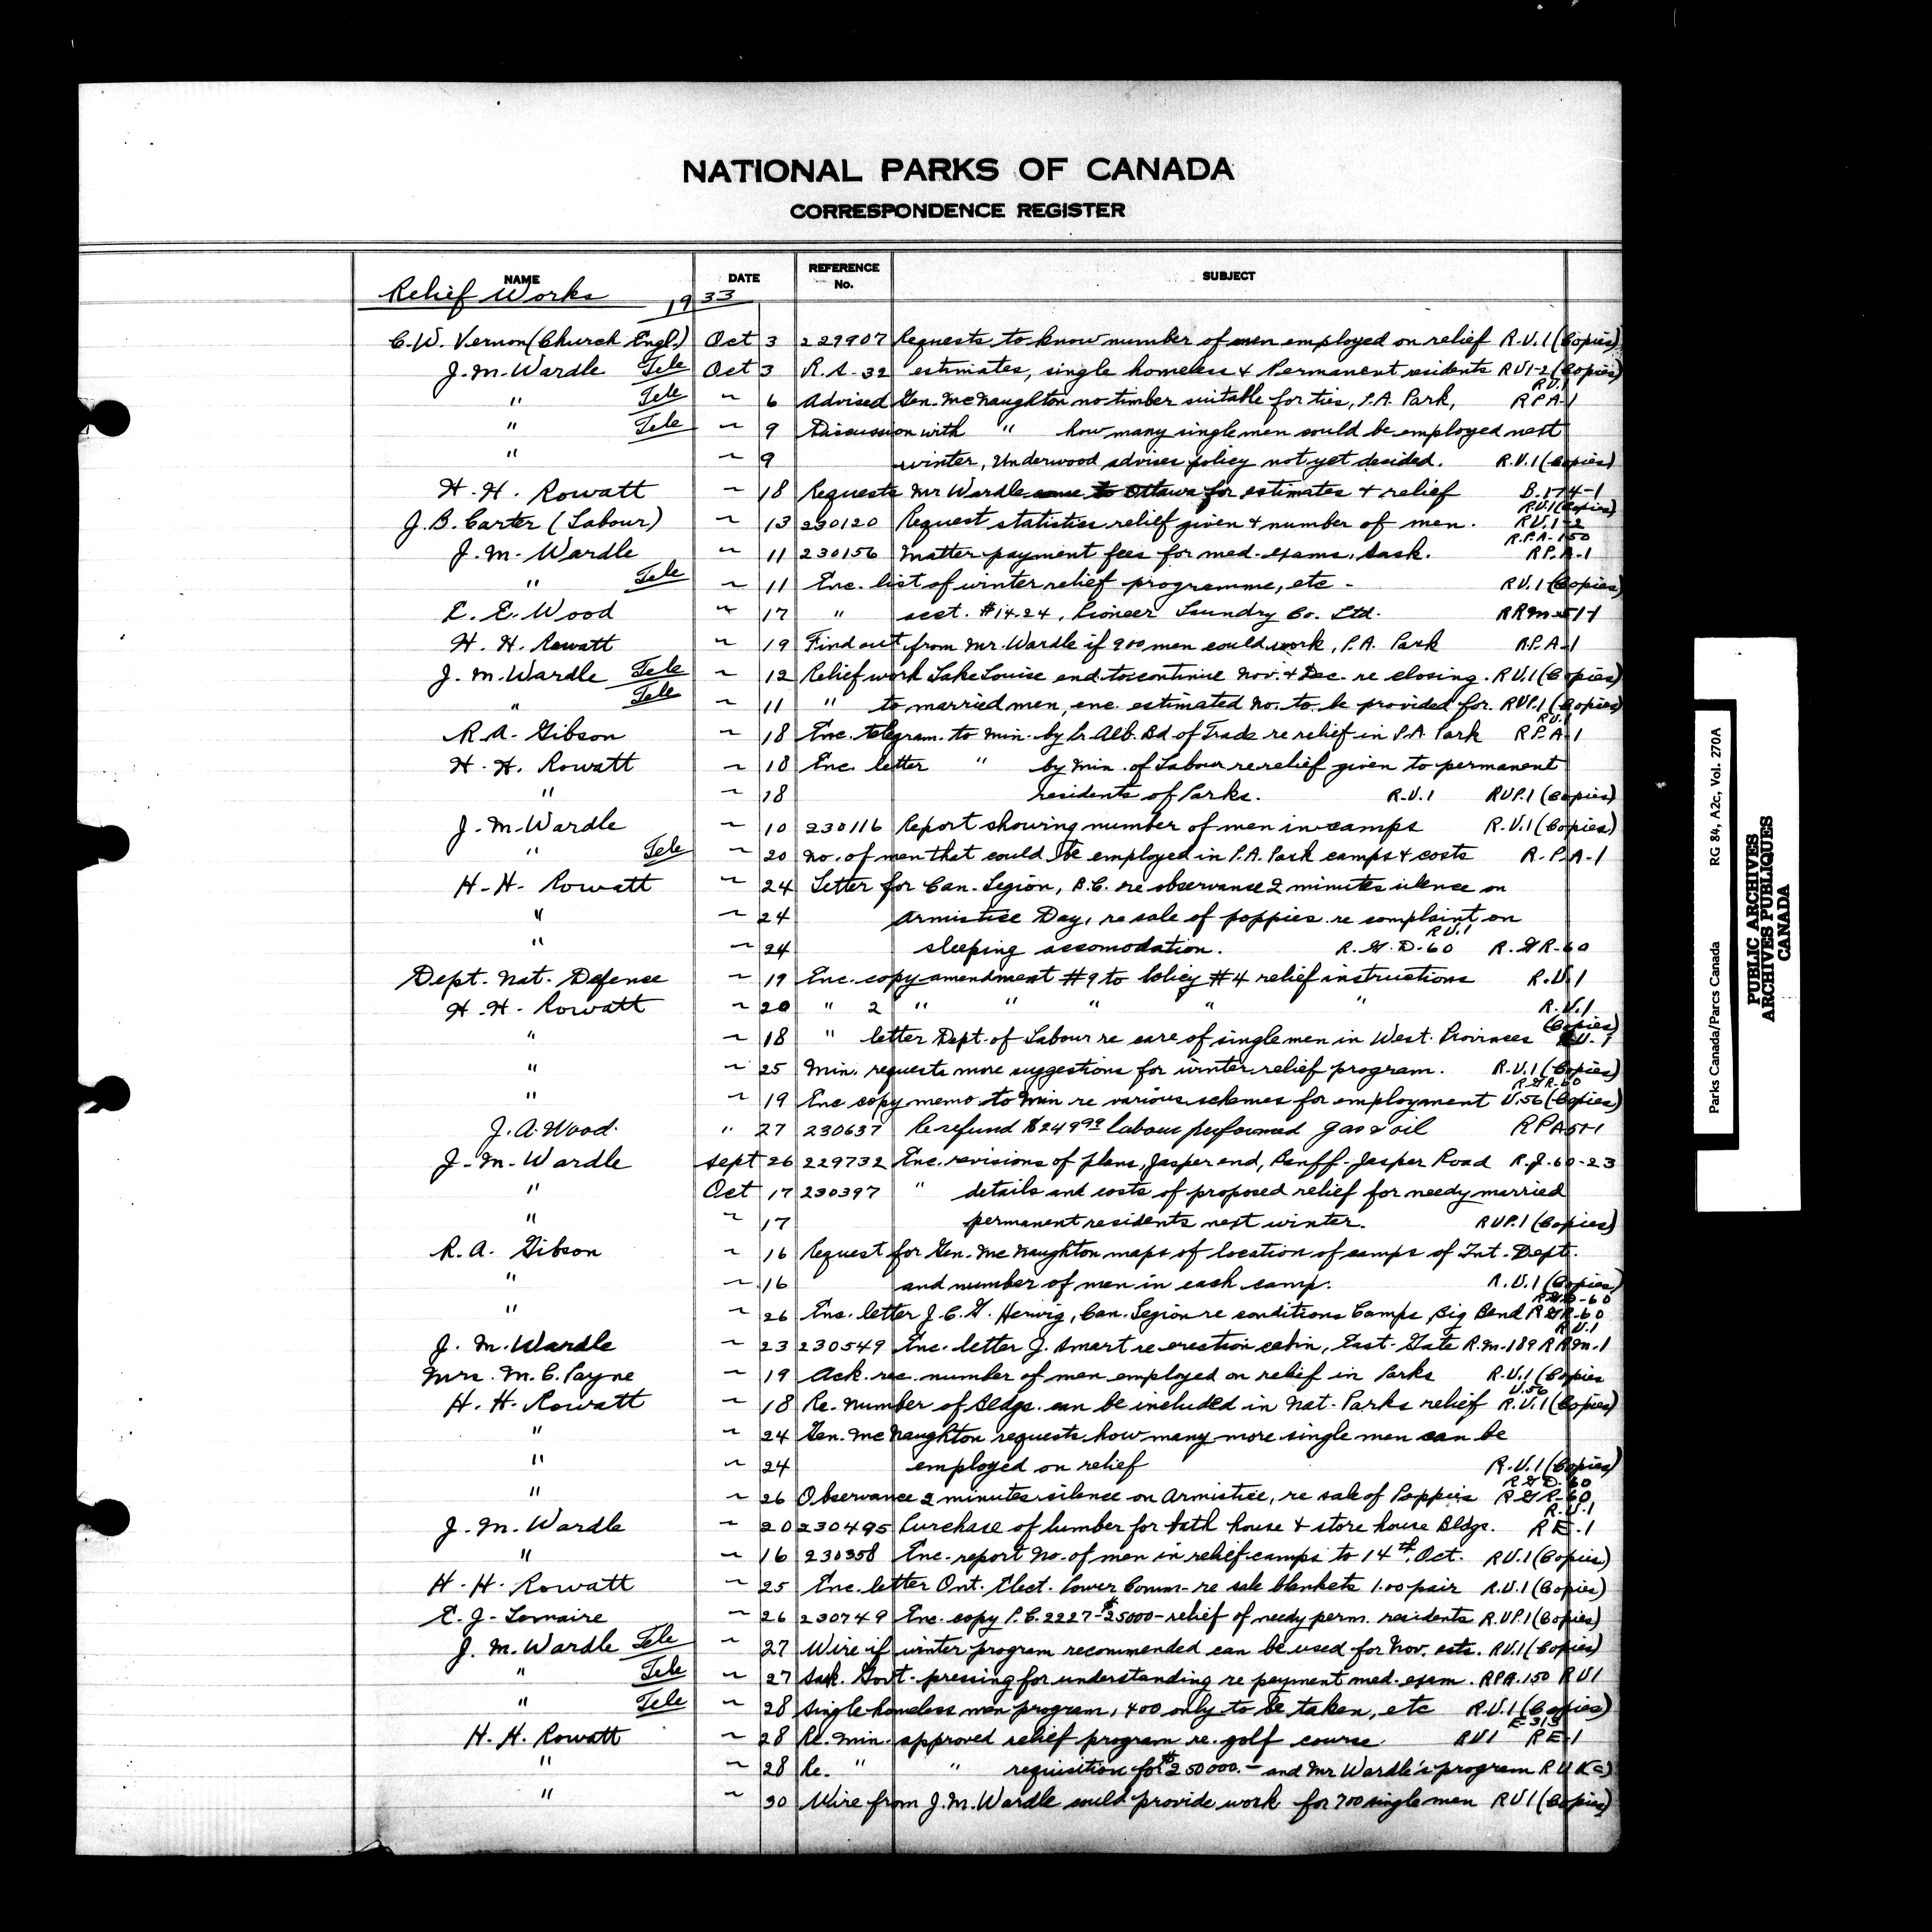 NATIONAL PARKS OF CANADA
CORRESPONDENCE REGISTER
NAME DATE REFERENCE No. SUBJECT
Relief Works 1933
C. W. Vernon (Church Engl.) Oct 3 229907 Requests to know number of men employed on relief R.V.1 (Copies)
J. M. Wardle Tele Oct 3 R.S.-32 estimates, single homeless & Permanent residents RV1-2 (Copies)
" Tele ~ 6 Advised Gen. McNaughton no timber suitable for ties, P.A. Park, R.V.1 R P A-1
" Tele ~ 9 Discussion with " how many single men could be employed next
" ~ 9 winter, Underwood advises policy not yet decided. R.V.1 (Copies)
H. H. Rowatt ~ 18 Requests Mr Wardle come to Ottawa for estimates & relief B.174-1
J. B. Carter (Labour) ~ 13 230120 Request statistics relief given & number of men. R.V.1 (Copies) R.V.1-2
J. M. Wardle ~ 11 230156 Matter payment fees for med-exams, Sask. R.P.A-150 R P.A-1
" Tele ~ 11 Enc. list of winter relief programme, etc - R V.1 (Copies)
E. E. Wood ~ 17 " acct. $14.24, Pioneer Laundry Co. Ltd. R R M-51-1
H. H. Rowatt ~ 19 Find out from Mr. Wardle if 900 men could work, P.A. Park R.P.A-1
J. M. Wardle Tele ~ 12 Relief work Lake Louise end to continue Nov. & Dec. re closing. R.V.1 (Copies)
" Tele ~ 11 " to married men, enc. estimated No. to be provided for. RVP.1 (Copies)
R. A. Gibson ~ 18 Enc. telegram to Min. by Pr. Alb. Bd of Trade re relief in P.A. Park R.V.1 R P A-1
H. H. Rowatt ~ 18 Enc. letter " by Min. of Labour re relief given to permanent
" ~ 18 residents of Parks. R.V.1 RVP.1 (Copies)
J. M. Wardle ~ 10 230116 Report showing number of men in camps R.V.1 (Copies)
" Tele ~ 20 No. of men that could be employed in P.A. Park camps & costs R.P.A-1
H. H. Rowatt ~ 24 Letter for Can. Legion, B.C. re observance 2 minutes silence on
" ~ 24 Armistice Day, re sale of poppies re complaint on
" ~ 24 sleeping accomodation. R.V.1 R.G.D-60 R.GR-60
Dept. Nat. Defense ~ 19 Enc. copy amendment #9 to Policy #4 relief instructions R.V.1
H. H. Rowatt ~ 20 " 2 " " " " " R.V.1
" ~ 18 " letter Dept. of Labour re care of single men in West. Provinces (Copies) RV.-1
" ~ 25 Min. requests more suggestions for winter relief program. R.V.1 (Copies)
" ~ 19 Enc copy memo to Min re various schemes for employment R.GR-60 V.56 (Copies)
J. A. Wood " 27 230637 Re refund $249 99 labour performed gas & oil R P A 51-1
J. M. Wardle Sept 26 229732 Enc. revisions of plans, Jasper end, Banff-Jasper Road R.J-60-23
" Oct 17 230397 " details and costs of proposed relief for needy married
" ~ 17 permanent residents next winter. RVP.1 (Copies)
R. A. Gibson ~ 16 Request for Gen. McNaughton maps of location of camps of Int. Dept.
" ~ 16 and number of men in each camp. R.V.1 (Copies)
" ~ 26 Enc. letter J. C. G. Herwig, Can. Legion re conditions Camps, Big Bend R GD-60 R GR-60
J. M. Wardle ~ 23 230549 Enc. letter J. Smart re erection cabin, East Gate R.M-189 R.V.1 R R M-1
Mrs. M. C. Payne ~ 19 Ack. rec. number of men employed on relief in Parks R.V.1 (Copies
H. H. Rowatt ~ 18 Re. Number of Bldgs. can be included in Nat. Parks relief V.56 R.V.1 (Copies)
" ~ 24 Gen. McNaughton requests how many more single men can be
" ~ 24 employed on relief R.V.1 (Copies)
" ~ 26 Observance 2 minutes silence on Armistice, re sale of Poppies R GD-60 R GR-60
J. M. Wardle ~ 20 230495 Purchase of lumber for bath house & store house Bldgs. R.V.1 R E.1
" ~ 16 230358 Enc. report No. of men in relief camps to 14th. Oct. RV.1 (Copies)
H. H. Rowatt ~ 25 Enc. letter Ont. Elect. Power Comm- re sale blankets 1.00 pair R.V.1 (Copies)
E. J. Lemaire ~ 26 230749 Enc. copy P.C. 2227-$25000- relief of needy perm. residents R.VP.1 (Copies)
J. M. Wardle Tele ~ 27 Wire if winter program recommended can be used for Nov. ests. R.V.1 (Copies)
" Tele ~ 27 Sask. Govt. pressing for understanding re payment med. exam. RPA.150 R V 1
" Tele ~ 28 Single homeless men program, 400 only to be taken, etc R.V.1 (Copies)
H. H. Rowatt ~ 28 Re. Min. approved relief program re. golf course. RV1 E-313 R E-1
" ~ 28 Re. " " requisition for $250000.- and Mr Wardle's program R V 1(C)
" ~ 30 Wire from J. M. Wardle could provide work for 700 single men RV1 (Copies)
Parks Canada/Parcs Canada RG 84, A2c, Vol. 270A
PUBLIC ARCHIVES
ARCHIVES PUBLIQUES
CANADA